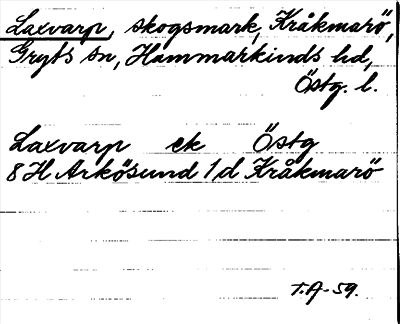 Laxvarp, skogsmark, Kråkmarö,
Gryts sn, Hammarkinds hd,
Östg. l.
Laxvarp ek Östg
8 H Arkösund 1 d Kråkmarö
T.A-59.